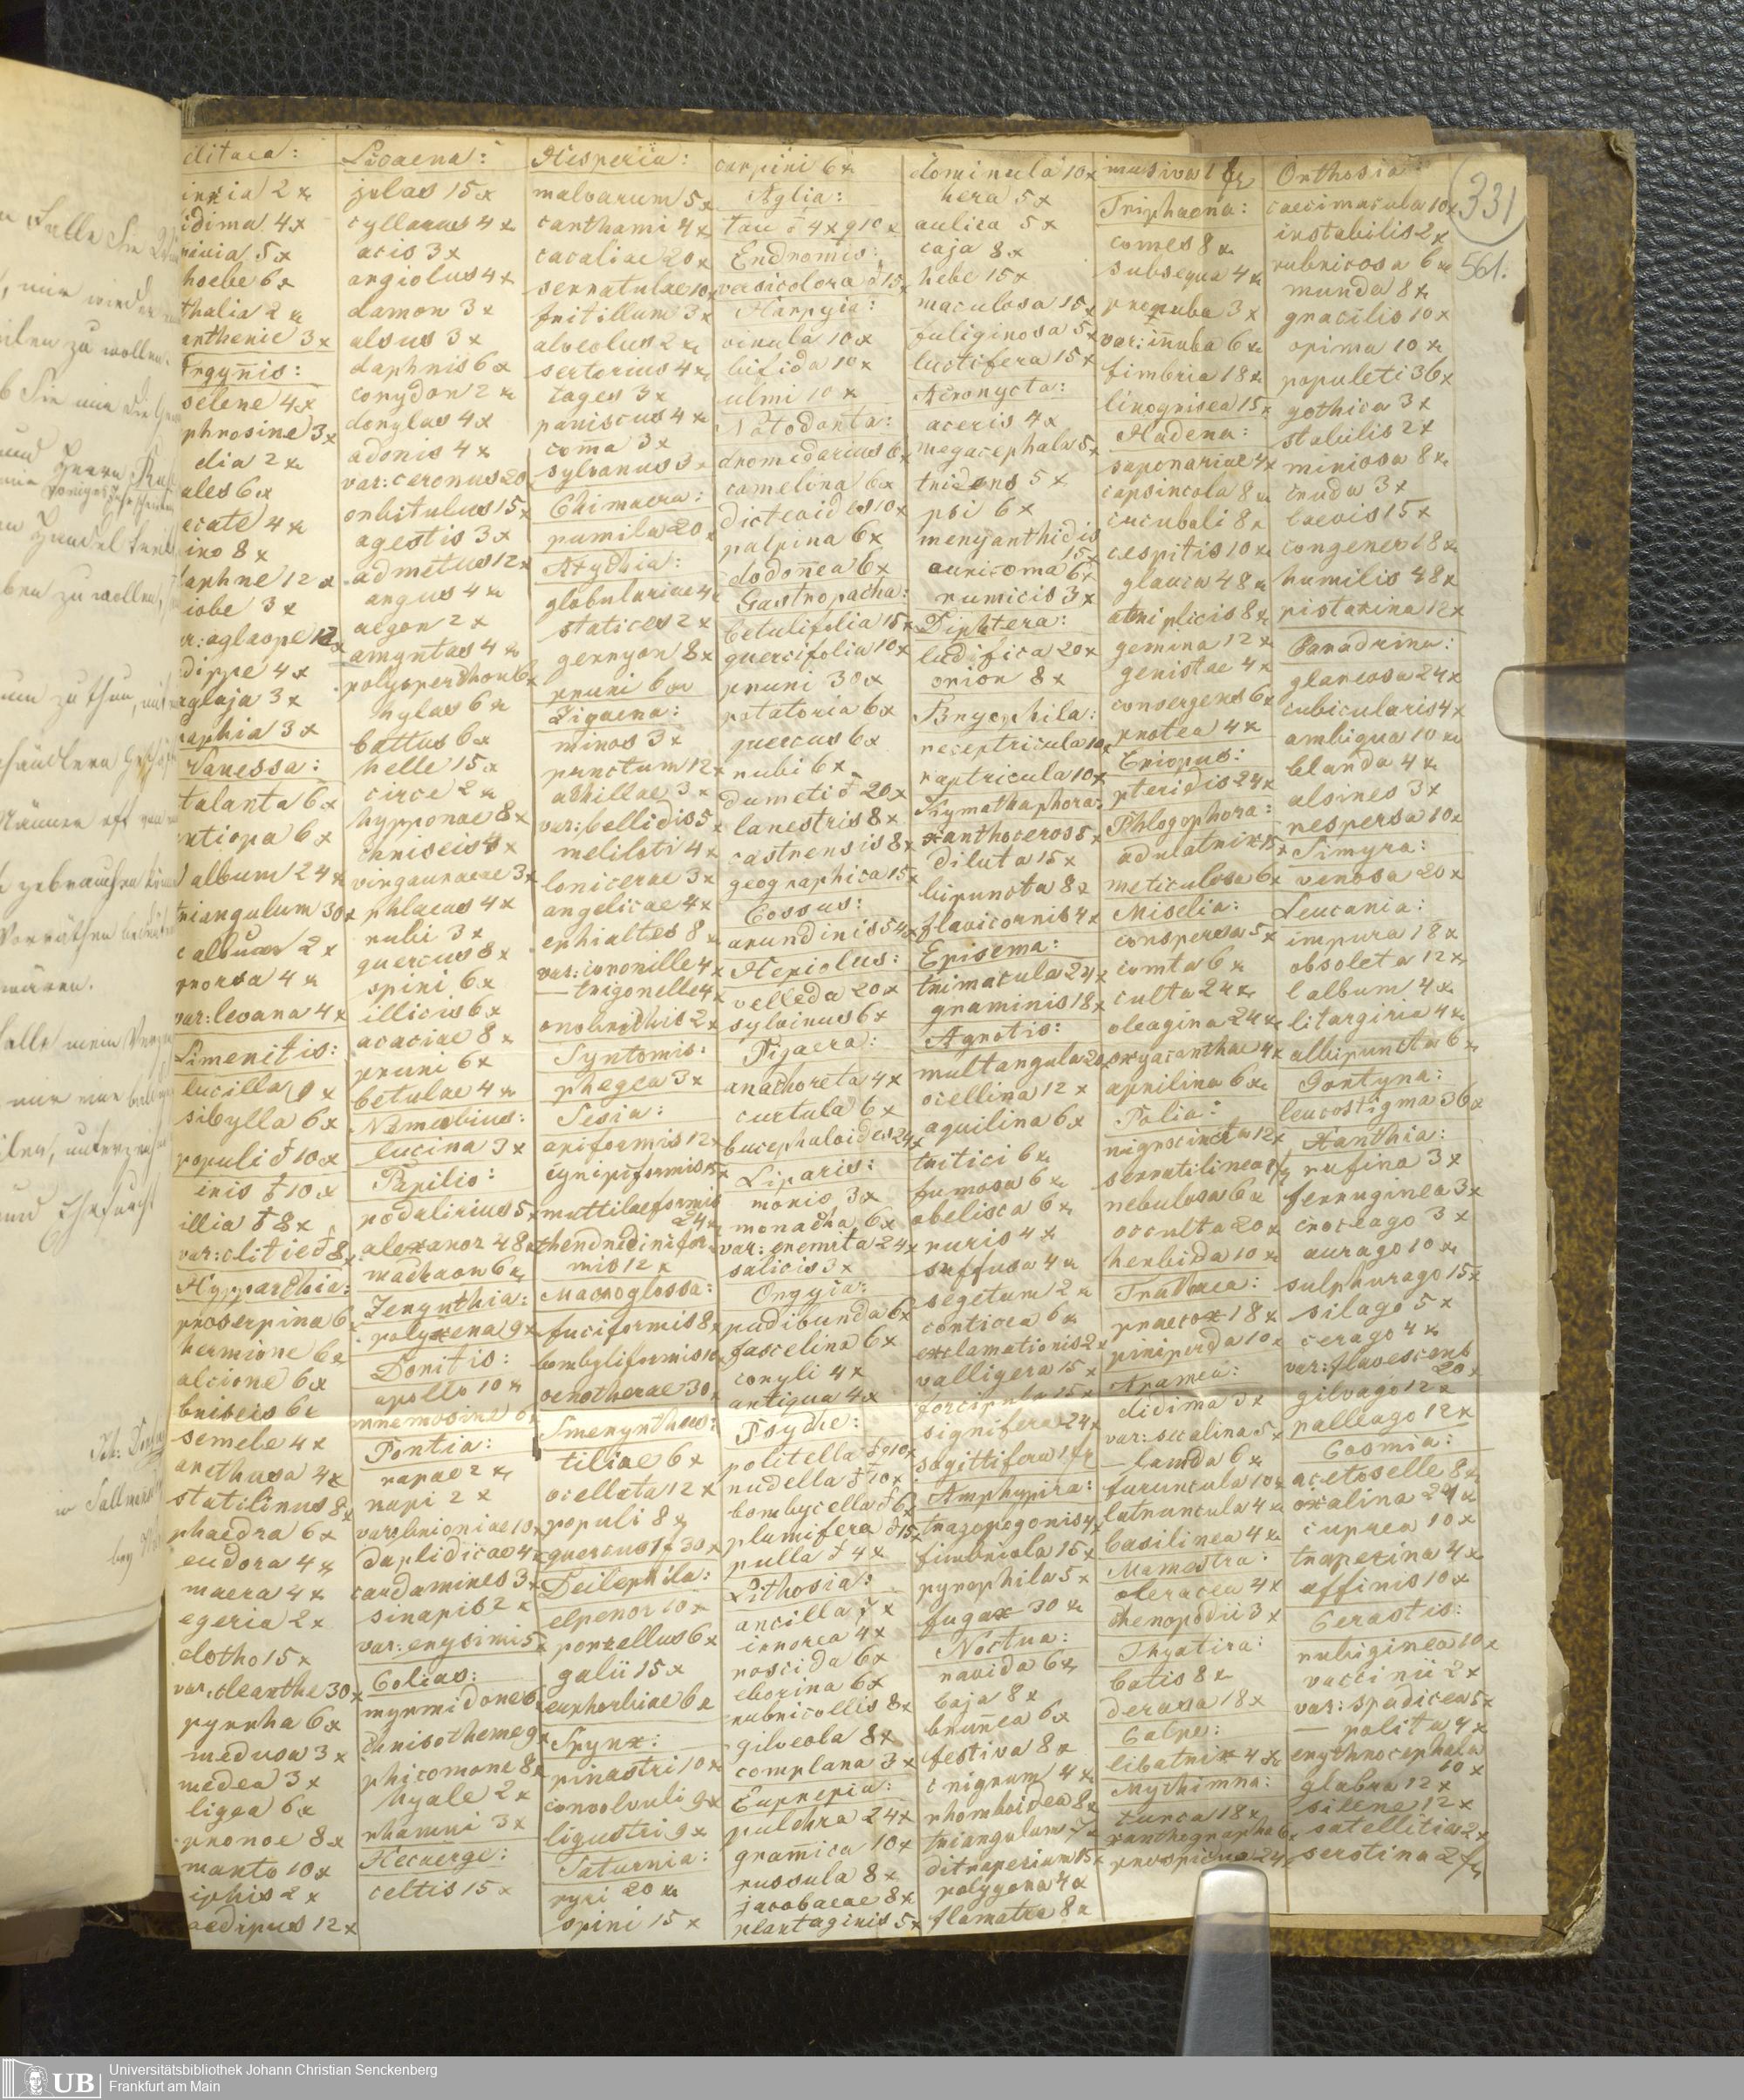 elitaea:
inxia 2 x
idima 4x
rinia 5x
hoebe 6x
thalia 2 x
arthenie 3x
Argyn̄is:
selene 4x
phrosine 3x
dia 2 x
ales 6x
ecate 4 x
ino 8 x
daphne 12 x
iobe 3 x
r: aglaope 12x
dippe 4 x
aglaja 3 x
raphia 3 x
Vanessa:
talanta 6 x
ntiopa 6 x
album 24 x
triangulum 30x
c album 2 x
prorsa 4 x
var: levana 4 x
Limenitis:
lucilla 9 x
sibylla 6x
populi ♂ 10x
iris ♂ 10x
illia ♂ 8x
var: clitie ♂ 8x
Hypparchia:
proserpina 6
hermione 6x
alcione 6x
briseis 6x
semele 4 x
arethusa 4x
statilinus 8x
phaedra 6x
eudora 4 x
maera 4 x
egeria 2 x
clotho 15 x
var: cleanthe 30x
pyrrha 6x
medusa 3 x
medea 3 x
ligea 6x
pronoe 8 x
manto 10x
iphis 2 x
aedipus 12 x
Licaena:
jolas 15x
cyllarus 4 x
acis 3x
argiolus 4x
damon 3x
alsus 3x
daphnis 6x
corydon 2 x
dorylas 4x
adonis 4 x
var: ceronus 20
orbitulus 15x
agestis 3x
admetus 12x
argus 4 x
aegon 2 x
amyntas 4 x
polysperchon 6x
hylas 6 x
battus 6x
helle 15x
circe 2 x
hypponae 8x
chriseis 4x
virgaureae 3x
phlaeas 4x
rubi 3 x
quercus 8x
spini 6x
illicis 6x
acaciae 8 x
pruni 6x
betulae 4 x
Nemeobius:
lucina 3 x
Papilio:
podalirius 5x
alexanor 48x
machaon 6x
Zerynthia:
polyxena 9x
Doritis:
apollo 10 x
mnemosine 6x
Pontia:
rapae 2 x
napi 2 x
var: brioniae 10x
daplidicae 4x
cardamines 3x
sinapis 2 x
var: erysimi 5x
Colias:
myrmidone 6
chrisotheme 9x
phicomone 8x
hyale 2 x
rhamni 3x
Hecaerge:
celtis 15 x
Hesperia:
malvarum 5x
carthami 4 x
cacaliae 20x
serratulae 10x
fritillum 3x
alveolus 2 x
sertorius 4 x
tages 3x
paniscus 4 x
com̄a 3x
sylvanus 3x
Chimaera:
pumila 20x
Atychia:
globulariae 4x
statices 2 x
geryon 8x
pruni 6x
Zigaena:
minos 3x
punctum 12x
achillae 3x
var: bellidis 5x
meliloti 4 x
lonicerae 3x
angelicae 4x
ephialtes 8 x
var: coronille 4x
— trigonelle 4x
onobrichis 2x
Syntomis:
phegea 3x
Sesia:
apiformis 12x
cynipiformis 15x
muttilaeformis
24x
thendredinifor-
mis 12 x
Macroglossa:
fuciformis 8x
bombyliformis 10x
oenotherae 30x
Smerynthus:
tiliae 6 x
ocellata 12 x
populi 8 x
quercus 1 f 30x
Deilephila:
elpenor 10x
porzellus 6x
galii 15 x
euphorbiae 6x
Spynx:
pinastri 10 x
convolvuli 9x
ligustri 9 x
Saturnia:
pyri 20 x
spini 15 x
carpini 6x
Aglia:
tau ♂ 4x ♀ 10x
Endromis:
versicolora ♂ 15x
Harpyia:
vinula 10x
bifida 10x
ulmi 10 x
Notodonta:
dromedarius 6x
camelina 6x
dictaeoides 10x
palpina 6x
dodon̄ea 6x
Gastropacha:
betulifolia 15x
quercifolia 10x
pruni 30x
potatoria 6x
quercus 6x
rubi 6x
dumeti ♂ 20x
lanestris 8x
castrensis 8x
geographica 15x
Cossus:
arundinis 54x
Hepiolus:
velleda 20x
sylvinus 6x
Pigaera:
anachoreta 4x
curtula 6x
bucephaloides 24x
Liparis:
morio 3x
monacha 6x
var: eremita 24x
salicis 3x
Orgyia:
pudibunda 6x
fascelina 6x
coryli 4x
antiqua 4x
Psyche:
politella ♂ 10x
nudella ♂ 10x
bombycella ♂ 6x
plumifera ♂ 15x
pulla ♂ 4x
Lithosia:
ancilla 7 x
irrorea 4x
roscida 6x
eborina 6x
rubricollis 8x
gilveola 8x
complana 3x
Euprepia:
pulchra 24x
gram̄ica 10x
russula 8x
jacobaeae 8x
plantaginis 5x
dominula 10x
hera 5x
aulica 5x
caja 8x
hebe 15x
maculosa 15x
fuliginosa 5x
luctifera 15x
Acronycta:
aceris 4x
megacephala 5x
tridens 5 x
psi 6 x
menyanthidis
15x
auricoma 6x
rumicis 3x
Diphtera:
ludifica 20x
orion 8x
Bryophila:
receptricula 10x
raptricula 10x
Kymathophora:
xanthoceros 5x
diluta 15x
bipuncta 8x
flavicornis 4x
Episema:
trimacula 24x
graminis 18x
Agrotis:
multangula 20x
ocellina 12 x
aquilina 6x
tritici 6x
fumosa 6 x
obelisca 6 x
ruris 4x
suffusa 4x
segetum 12 x
corticea 6 x
exclamationis 2x
valligera 15 x
forcipula 15 x
signifera 24x
sagittifera 1 f
Amphypira:
tragopogonis 4x
fimbriola 15x
pyrophila 5x
fugax 30 x
Noctua:
ravida 6x
baja 8x
brun̄ea 6x
festiva 8x
c nigrum 4x
rhomboidea 8x
triangulum 7x
ditrapezium 15x
polygona 4x
flamatra 8x
musiva 1 f
Triphaena:
comes 8x
subsequa 4x
pronuba 3x
var: in̄uba 6x
fimbria 18x
linogrisea 15x
Hadena:
saponariae 4x
capsincola 8 x
cucubali 8x
cespitis 10x
glauca 48x
atriplicis 8x
gemina 12 x
genistae 4x
convergens 6x
protea 4x
Eriopus:
pteridis 24x
Phlogophora:
adulatrix 15x
meticulosa 6x
Miselia:
conspersa 5x
comta 6 x
culta 24x
oleagina 24x
oxyacanthae 4x
aprilina 6x
Polia:
nigrocincta 12x
serratilinea 1f
nebulosa 6x
occulta 20x
herbida 10x
Trachea:
praecox 18x
piniperda 10x
Apamea:
didima 3x
var: secalina 5x
furuncula 10x
latruncula 4x
basilinea 4x
Mamestra:
oleracea 4x
chenopodii 3x
Thyatira:
batis 8x
derasa 18x
Calpe:
libatrix 4x
Mythimna:
turca 18x
xanthographa 6x
prospicua 24x
Orthosia:
caecimacula 10x
instabilis 2x
rubricosa 6x
munda 8x
gracilis 10x
opima 10 x
populeti 36x
gothica 3x
stabilis 2x
miniosa 8x
cruda 3x
laevis 15x
congener 18x
humilis 48x
pistacina 12x
Caradrina:
glareosa 24x
cubicularis 4x
ambigua 10x
blanda 4x
alsines 3x
respersa 10x
Simyra:
venosa 20x
Leucania:
impura 18x
obsoleta 12x
l album 4x
litargiria 4x
albipuncta 6x
Gortyna:
leucostigma 36x
Xanthia:
rufina 3x
ferruginea 3x
croceago 3x
aurago 10x
sulphurago 15x
silago 5x
cerago 4x
var: flavescens
20x
gilvago 12x
palleago 12x
Cosmia:
acetoselle 8x
oxalina 24x
cuprea 10x
trapezina 4x
affinis 10x
Cerastis:
rubiginea 10x
vaccinii 2x
var: spadicea 5x
— polita 4x
erythrocephala
10x
glabra 12x
silene 12x
satellitia 2x
serotina 2f
331
561.
UB
Universitätsbibliothek Johann Christian Senckenberg
Frankfurt am Main